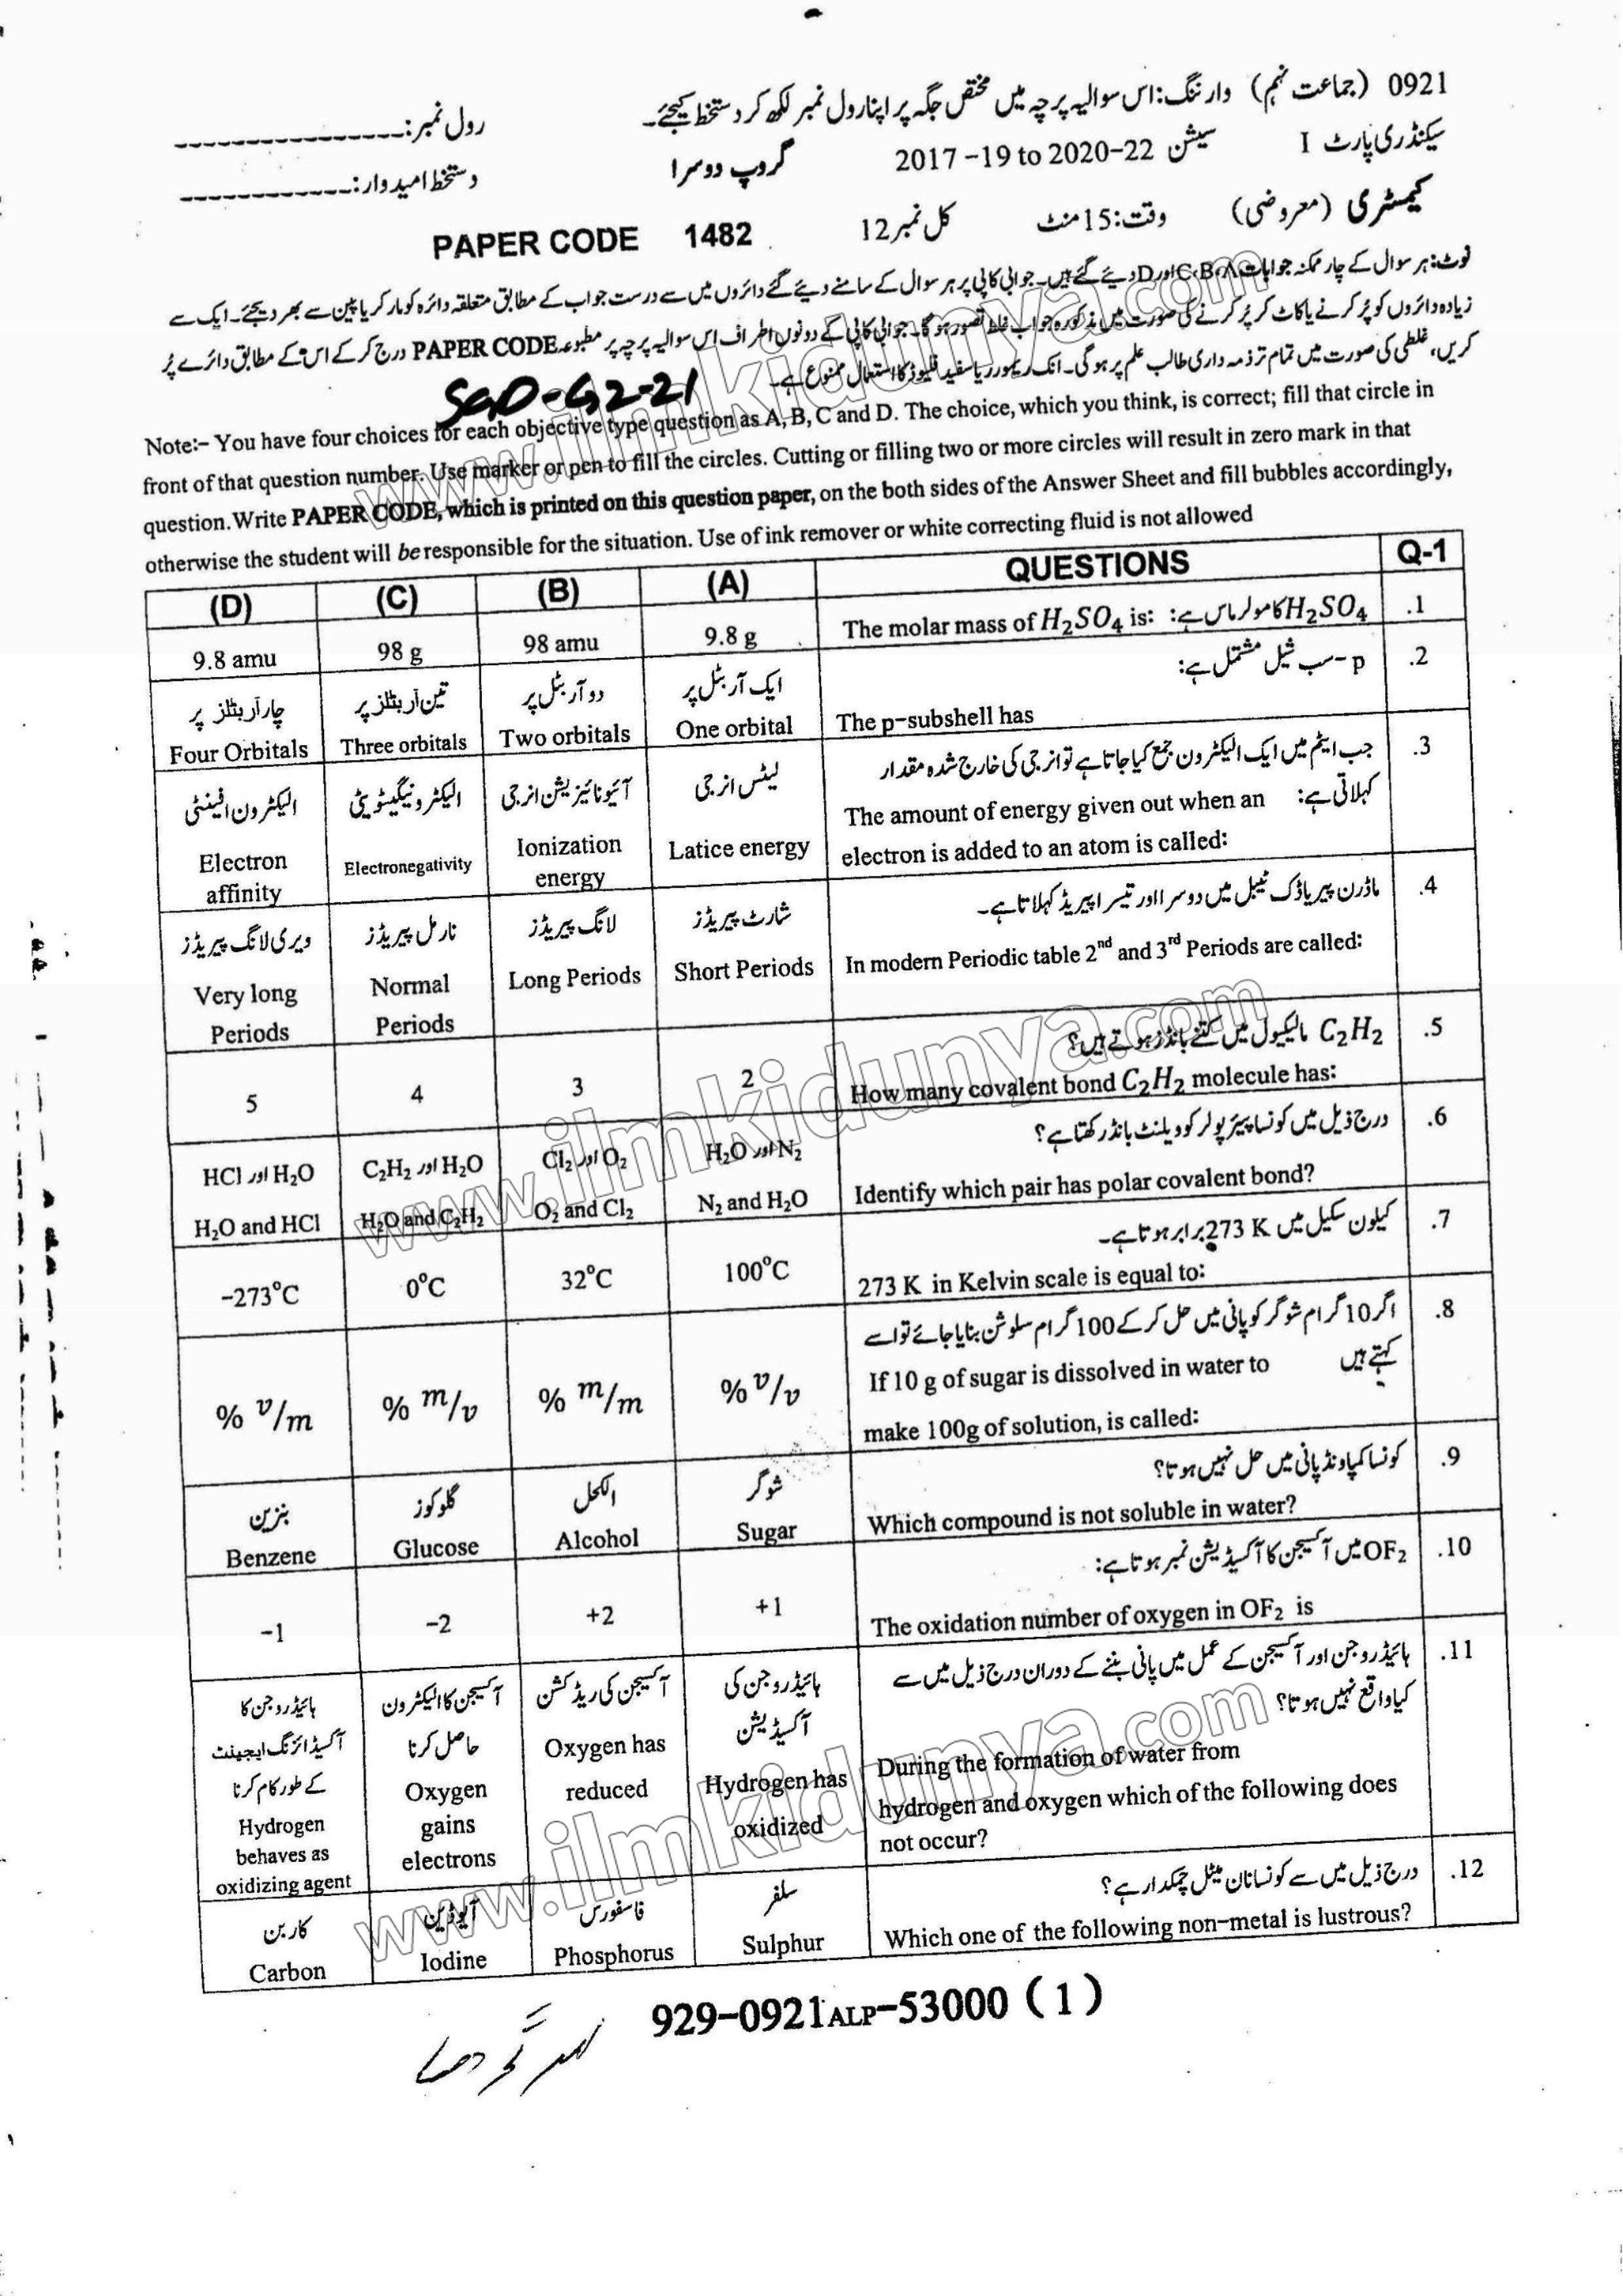 0921 (جماعت نہم) وارننگ: اس سوالیہ پرچہ میں مختص جگہ پر اپنا رول نمبر لکھ کر دستخط کیجئے۔ رول نمبر:
سیکنڈری پارٹ I سیشن 2017-19 to 2020-22 گروپ دوسرا دستخط امیدوار:
کیمسٹری (معروضی) وقت: 15 منٹ کل نمبر 12 PAPER CODE 1482
نوٹ: ہر سوال کے چار ممکنہ جوابات A، B، C اور D دیئے گئے ہیں۔ جوابی کاپی پر ہر سوال کے سامنے دیئے گئے دائروں میں سے درست جواب کے مطابق متعلقہ دائرہ کو مارکر یا پین سے بھر دیجئے۔ ایک سے
زیادہ دائروں کو پُر کرنے یا کاٹ کر پُر کرنے کی صورت میں مذکورہ جواب غلط تصور ہو گا۔ جوابی کاپی کے دونوں اطراف اس سوالیہ پرچہ پر مطبوعہ PAPER CODE درج کر کے اس کے مطابق دائرے پُر
کریں، غلطی کی صورت میں تمام تر ذمہ داری طالب علم پر ہوگی۔ انک ریموور یا سفید فلیوڈ کا استعمال ممنوع ہے۔
SGD-G2-21
Note:- You have four choices for each objective type question as A, B, C and D. The choice, which you think, is correct; fill that circle in
front of that question number. Use marker or pen to fill the circles. Cutting or filling two or more circles will result in zero mark in that
question. Write PAPER CODE, which is printed on this question paper, on the both sides of the Answer Sheet and fill bubbles accordingly,
otherwise the student will be responsible for the situation. Use of ink remover or white correcting fluid is not allowed
(D) (C) (B) (A) QUESTIONS Q-1
9.8 amu 98 g 98 amu 9.8 g The molar mass of H₂SO₄ is: H₂SO₄ کا مولر ماس ہے: .1
p-سب شیل مشتمل ہے: .2
چار آربٹلز پر تین آربٹلز پر دو آربٹل پر ایک آربٹل پر
Four Orbitals Three orbitals Two orbitals One orbital The p-subshell has
جب ایٹم میں ایک الیکٹرون جمع کیا جاتا ہے تو انرجی کی خارج شدہ مقدار .3
کہلاتی ہے:
الیکٹرون افینٹی الیکٹرونیگیٹویٹی آئیونائزیشن انرجی لیٹس انرجی
The amount of energy given out when an
electron is added to an atom is called:
Electron affinity Electronegativity Ionization energy Latice energy
ماڈرن پیریاڈک ٹیبل میں دوسرا اور تیسرا پیریڈ کہلاتا ہے۔ .4
ویری لانگ پیریڈز نارمل پیریڈز لانگ پیریڈز شارٹ پیریڈز
Very long Periods Normal Periods Long Periods Short Periods In modern Periodic table 2nd and 3rd Periods are called:
C₂H₂ مالیکیول میں کتنے بانڈز ہوتے ہیں؟ .5
5 4 3 2 How many covalent bond C₂H₂ molecule has:
درج ذیل میں کونسا پیئر پولر کوویلنٹ بانڈ رکھتا ہے؟ .6
H₂O اور HCl H₂O اور C₂H₂ O₂ اور Cl₂ N₂ اور H₂O
H₂O and HCl H₂O and C₂H₂ O₂ and Cl₂ N₂ and H₂O Identify which pair has polar covalent bond?
کیلون سکیل میں 273 K برابر ہوتا ہے۔ .7
-273°C 0°C 32°C 100°C 273 K in Kelvin scale is equal to:
اگر 10 گرام شوگر کو پانی میں حل کر کے 100 گرام سلوشن بنایا جائے تو اسے .8
کہتے ہیں
If 10 g of sugar is dissolved in water to
% v/m % m/v % m/m % v/v
make 100g of solution, is called:
کونسا کمپاونڈ پانی میں حل نہیں ہوتا؟ .9
بنزین گلوکوز الکحل شوگر
Benzene Glucose Alcohol Sugar Which compound is not soluble in water?
OF₂ میں آکسیجن کا آکسیڈیشن نمبر ہوتا ہے: .10
-1 -2 +2 +1 The oxidation number of oxygen in OF₂ is
ہائیڈروجن اور آکسیجن کے عمل میں پانی بننے کے دوران درج ذیل میں سے .11
کیا واقع نہیں ہوتا؟
ہائیڈروجن کا آکسیڈائزنگ ایجینٹ کے طور کام کرنا آکسیجن کا الیکٹرون حاصل کرنا آکسیجن کی ریڈکشن ہائیڈروجن کی آکسیڈیشن
During the formation of water from
hydrogen and oxygen which of the following does
not occur?
Hydrogen behaves as oxidizing agent Oxygen gains electrons Oxygen has reduced Hydrogen has oxidized
درج ذیل میں سے کونسا نان میٹل چمکدار ہے؟ .12
کاربن آیوڈین فاسفورس سلفر
Carbon Iodine Phosphorus Sulphur Which one of the following non-metal is lustrous?
929-0921ALP-53000 (1)
www.ilmkidunya.com
www.ilmkidunya.com
www.ilmkidunya.com